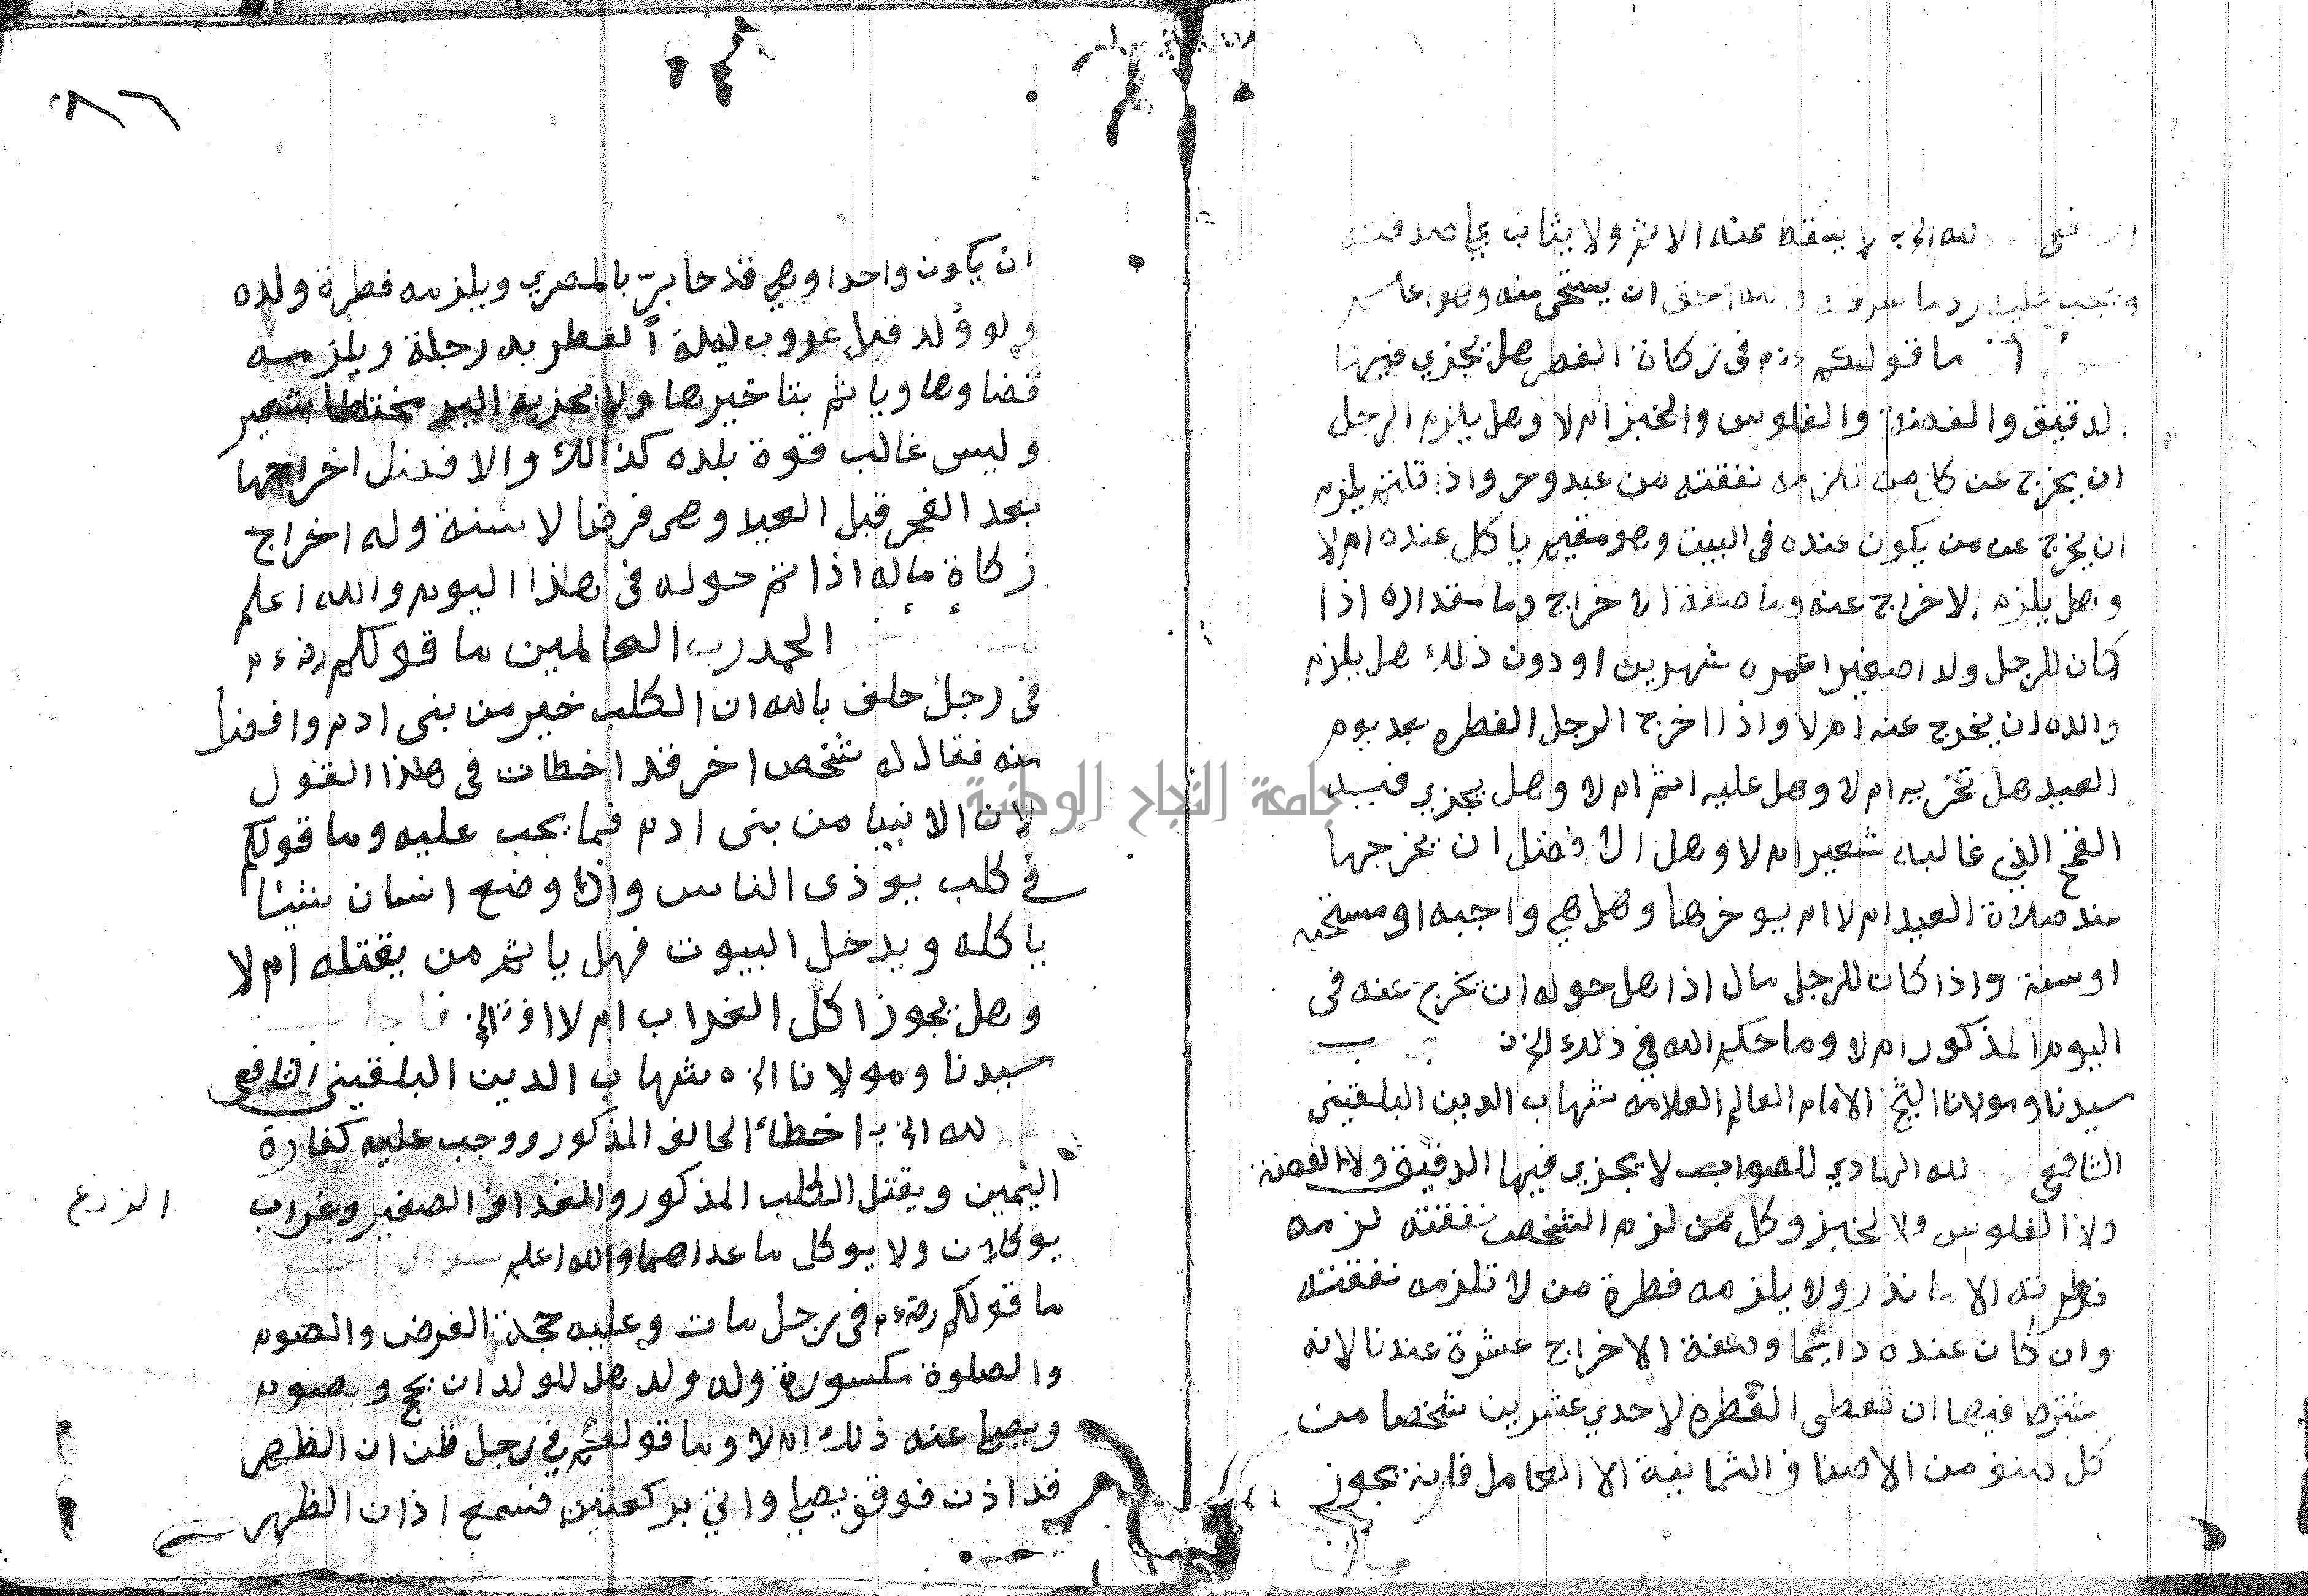 لله الخ لا يسقط عنه الاثم ولا يثاب على صدقته
ويجب عليه رد ما سرقه والله احق ان يستحى منه وهو اعلم
ما قولكم رضم في زكاة الفطر هل يجزي فيها
الدقيق والفضة والفلوس والخبز ام لا وهل يلزم الرجل
ان يخرج عن كل من تلزمه نفقته من عبد وحر واذا قلتم يلزم
ان يخرج عن من يكون عنده في البيت وهو مقيم ياكل عنده ام لا
وهل يلزم الاخراج عنه وما صفة الاخراج وما مقداره اذا
كان للرجل ولد اصغيرا عمره شهرين او دون ذلك هل يلزم
والده ان يخرج عنه ام لا واذا اخرج الرجل الفطره بعد يوم
العيد هل تجزيه ام لا وهل عليه اثم ام لا وهل يجزي فيه
القمح الذي غالبه شعير ام لا وهل الافضل ان يخرجها
عند صلاة العيد ام لا ام يوخرها وهل هي واجبه او مستحبه
او سنة واذا كان للرجل مال اذا هل حوله ان يخرج عنه في
اليوم المذكور ام لا وما حكم الله في ذلك
سيدنا ومولانا الشيخ الامام العالم العلامه شهاب الدين البلقيني
الشافعي لله الهادي للصواب لا يجزي فيها الدقيق ولا الفضة
ولا الفلوس ولا الخبز وكل من لزم الشخص نفقته لزمه
فطرته الا ما نذر ولا يلزمه فطرة من لا تلزمه نفقته
وان كان عنده دايما وصفة الاخراج عشرة عندنا لانه
يشترط فيها ان تعطى الفطره لاحدي عشرين شخصا من
كل صنف من الاصناف الثمانية الا العامل فانه يجوز
٨٦
ان يكون واحدا وهي قدحا بر بالمصري ويلزمه فطرة ولده
ولو وُلد قبل غروب ليلة الفطر بدرجة ويلزمه
قضاوها وياثم بتاخيرها ولا يجزيه البر مختلطا بشعير
وليس غالب قوة بلده كذلك والافضل اخراجها
بعد الفجر قبل العيد وهي فرض لا سنة وله اخراج
زكاة ماله اذا تم حوله في هذا اليوم والله اعلم
الحمد رب العالمين ما قولكم رضم
في رجل حلف بالله ان الكلب خير من بنى ادم وافضل
منه فقال له شخص اخر قد اخطات في هذا القول
لان الانبيا من بنى ادم فما يجب عليه وما قولكم
في كلب يوذى الناس واذا وضع انسان شيئا
ياكله ويدخل البيوت فهل ياثم من يقتله ام لا
وهل يجوز اكل الغراب ام لا
سيدنا ومولانا الخ شهاب الدين البلقيني الشافعي
لله الخ اخطأ الحالف المذكور ووجب عليه كفارة
اليمين ويقتل الكلب المذكور والغداف الصغير وغراب
الزرع
يوكلان ولا يوكل ما عداهما والله اعلم
ما قولكم رضم في رجل مات وعليه حجة الفرض والصوم
والصلوة مكسورة وله ولد هل للولد ان يحج ويصوم
ويصلي عنه ذلك ام لا وما قولكم في رجل ظن ان الظهر
قد اذن فوقف يصلي واتى بركعتين فسمع اذان الظهر
جامعة النجاح الوطنية